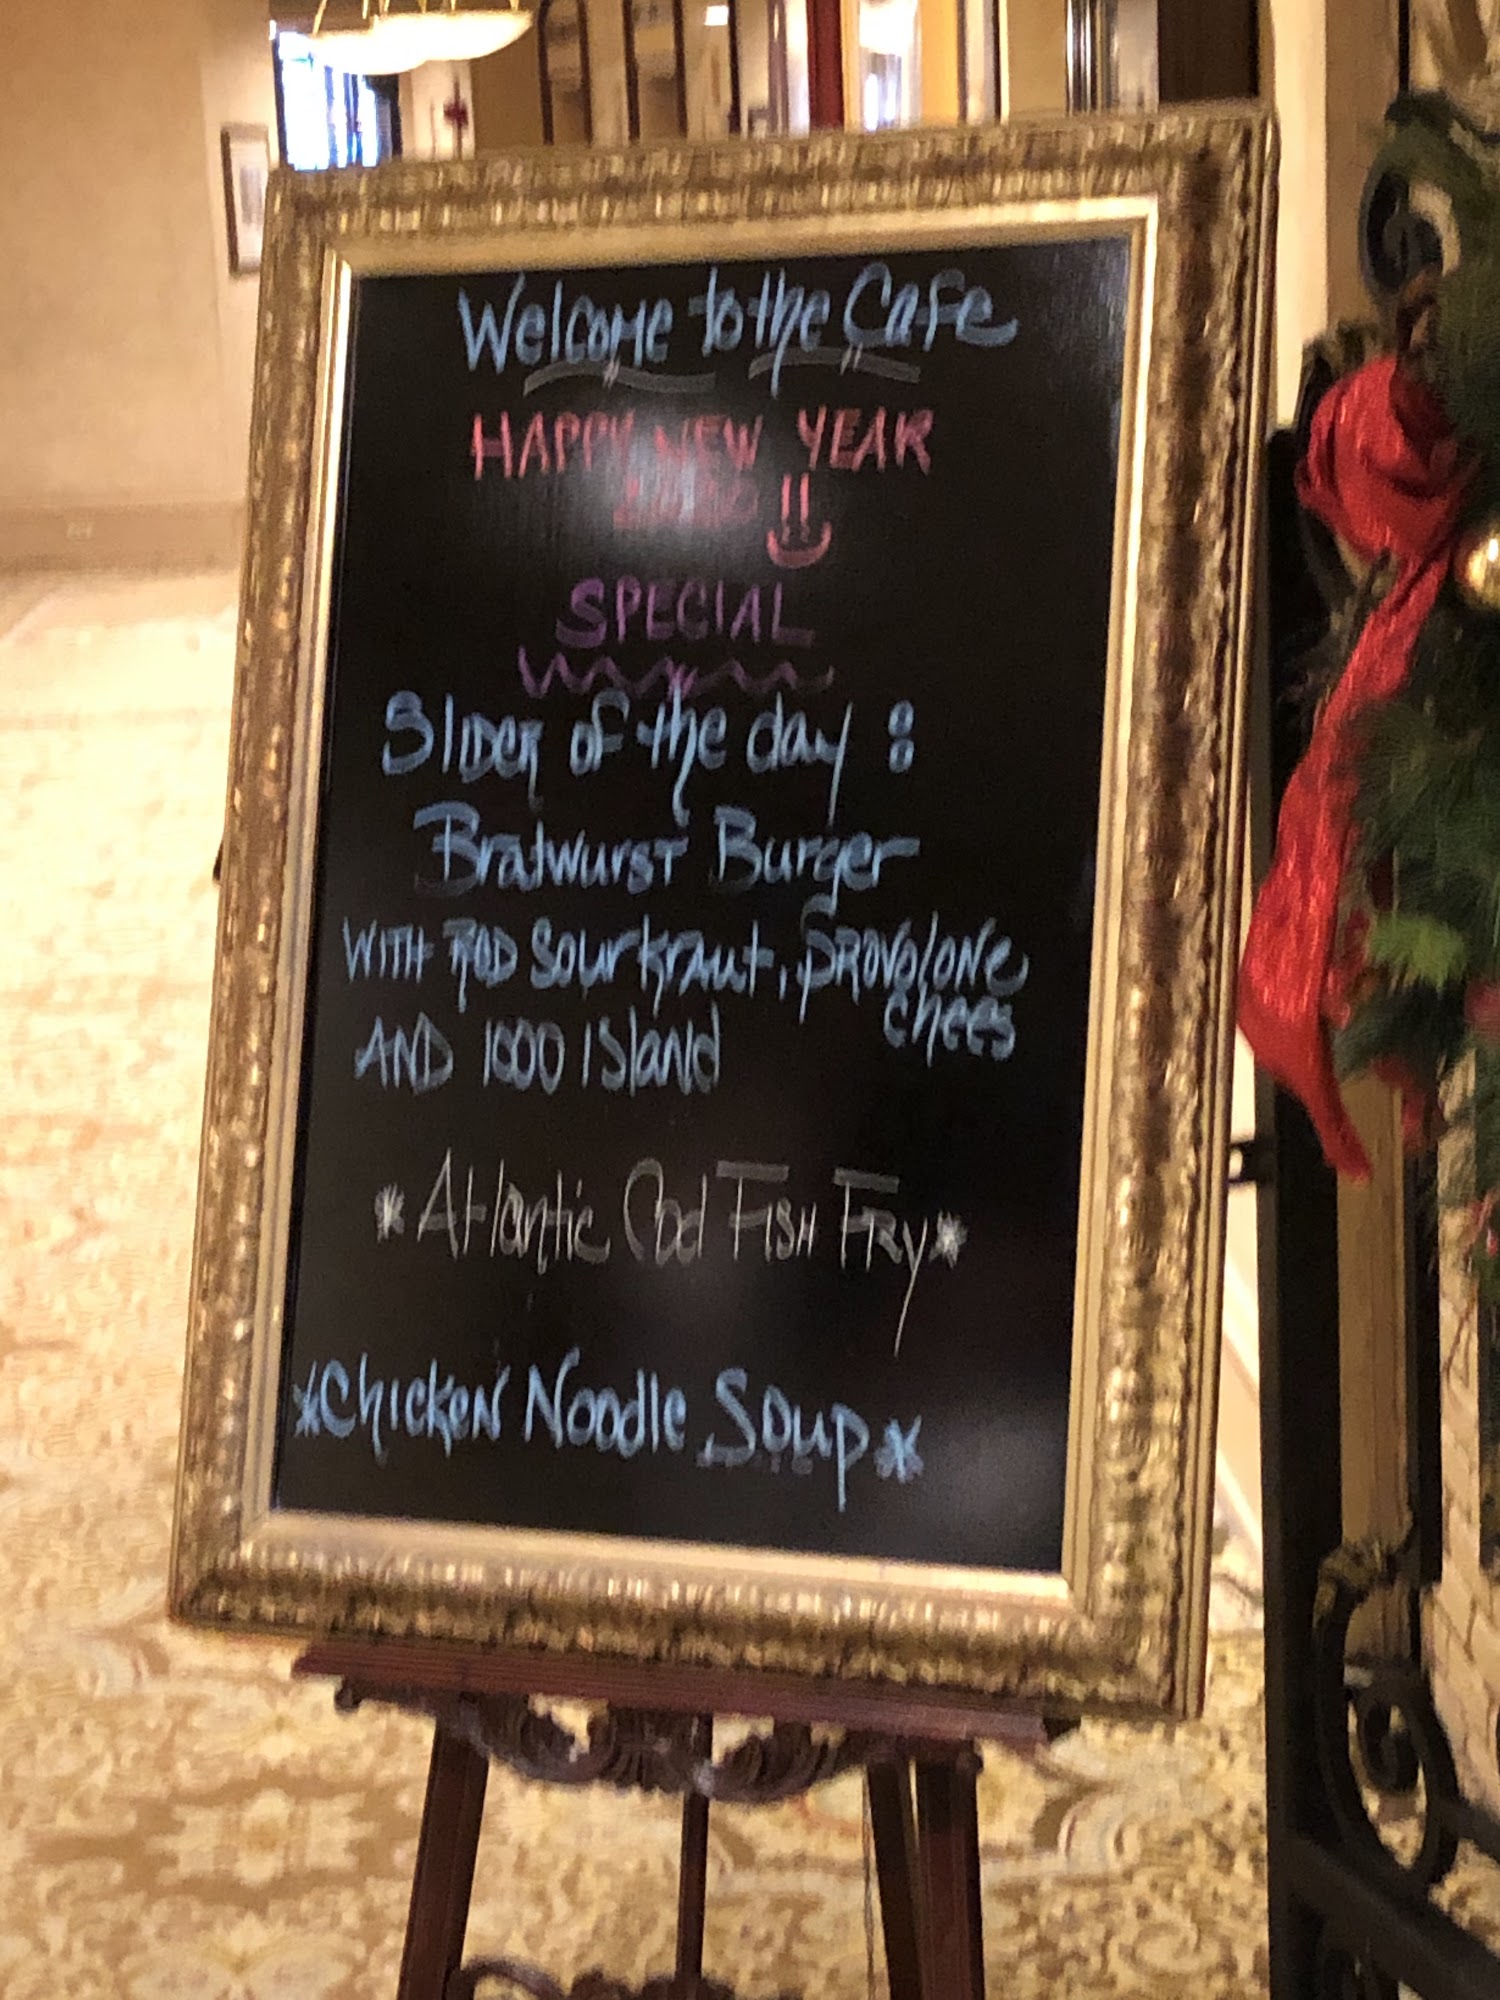 Welcome to the Cafe
HAPPY NEW YEAR
!!
SPECIAL
Slider of the day :
Bratwurst Burger
WITH RED Sourkraut, PROVOlONe
chees
AND 1000 ISland
* Atlantic Cod FISH FRy *
* ChickeN Noodle Soup *